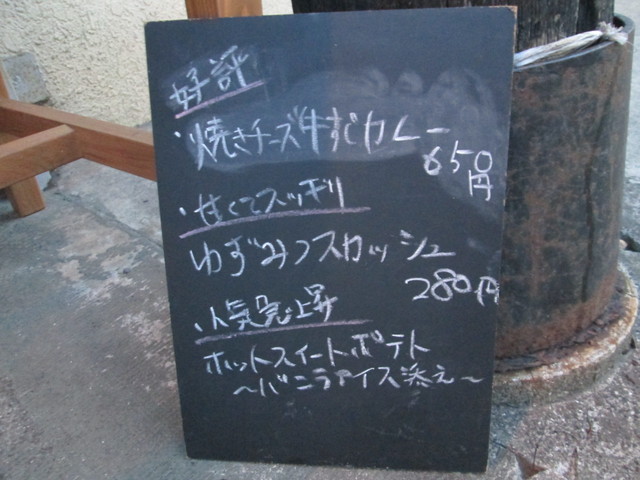 好評
・焼きチーズ牛すじカレー
650円
・甘くてスッキリ
ゆずみつスカッシュ
280円
・人気急上昇
ホットスイートポテト
～バニラアイス添え～